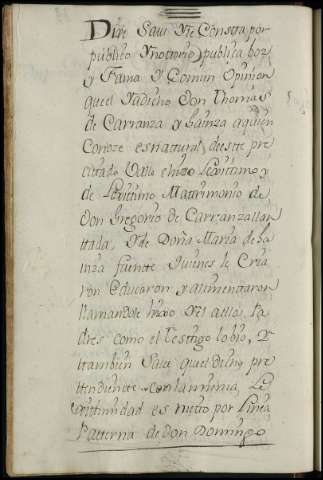 Dixe Save Y le Consta por
público Ynotorio, publica boz
y Fama Y Comun Opinion
que el Ytadicho Don Thomas
de Carranza y Sainza aquien
Conoze es natural, deeste pre
citado Valle e hixo Lexittimo y
de Lexittimo Matrimonio de
Don Gregorio de Carranza llan
ttada, Yde Doña Maria de Sa
inza fuente quienes le Cria
ron Educaron y alimentaron
llamandole hixo Y el aellos Pa
dres como el Testigo lo bio, Y
ttambien Save que el dicho pre
ttendiente con la misma, Le
xittimidad es nietto por linea
Patterna de Don Domingo